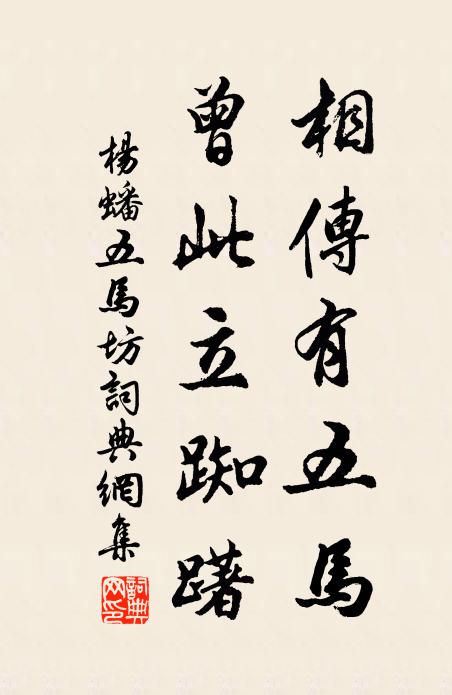 相傳有五馬
曾此立踟躇
楊蟠五馬坊詞典網集
詞典网印